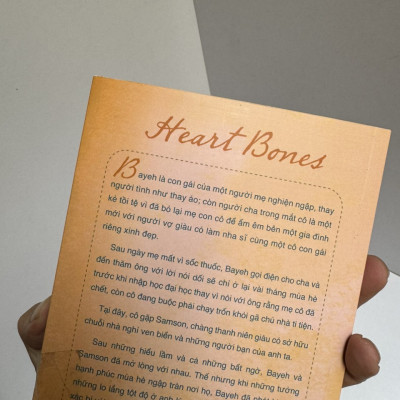 Heart Bones
Bayeh là con gái của một người mẹ nghiện ngập, thay
người tình như thay áo; còn người cha trong mắt cô là một
kẻ tồi tệ vì đã bỏ lại mẹ con cô để ấm êm bên một gia đình
mới với người vợ giàu có làm nha sĩ cùng một cô con gái
riêng xinh đẹp.
Sau ngày mẹ mất vì sốc thuốc, Bayeh gọi điện cho cha và
đến thăm ông với lời nói dối sẽ chỉ ở lại vài tháng mùa hè
trước khi nhập học đại học thay vì nói với ông rằng mẹ cô đã
chết, còn cô đang buộc phải chạy trốn khỏi gã chủ nhà ti tiện.
Tại đây, cô gặp Samson, chàng thanh niên giàu có sở hữu
chuỗi nhà nghỉ ven biển và những người bạn của anh ta.
Sau những hiểu lầm và cả những bất ngờ, Bayeh và
Samson đã mở lòng với nhau. Thế nhưng khi những tưởng
hạnh phúc mùa hè ngập tràn nơi họ, Bayeh đã phát
những lo lắng tột độ ở anh